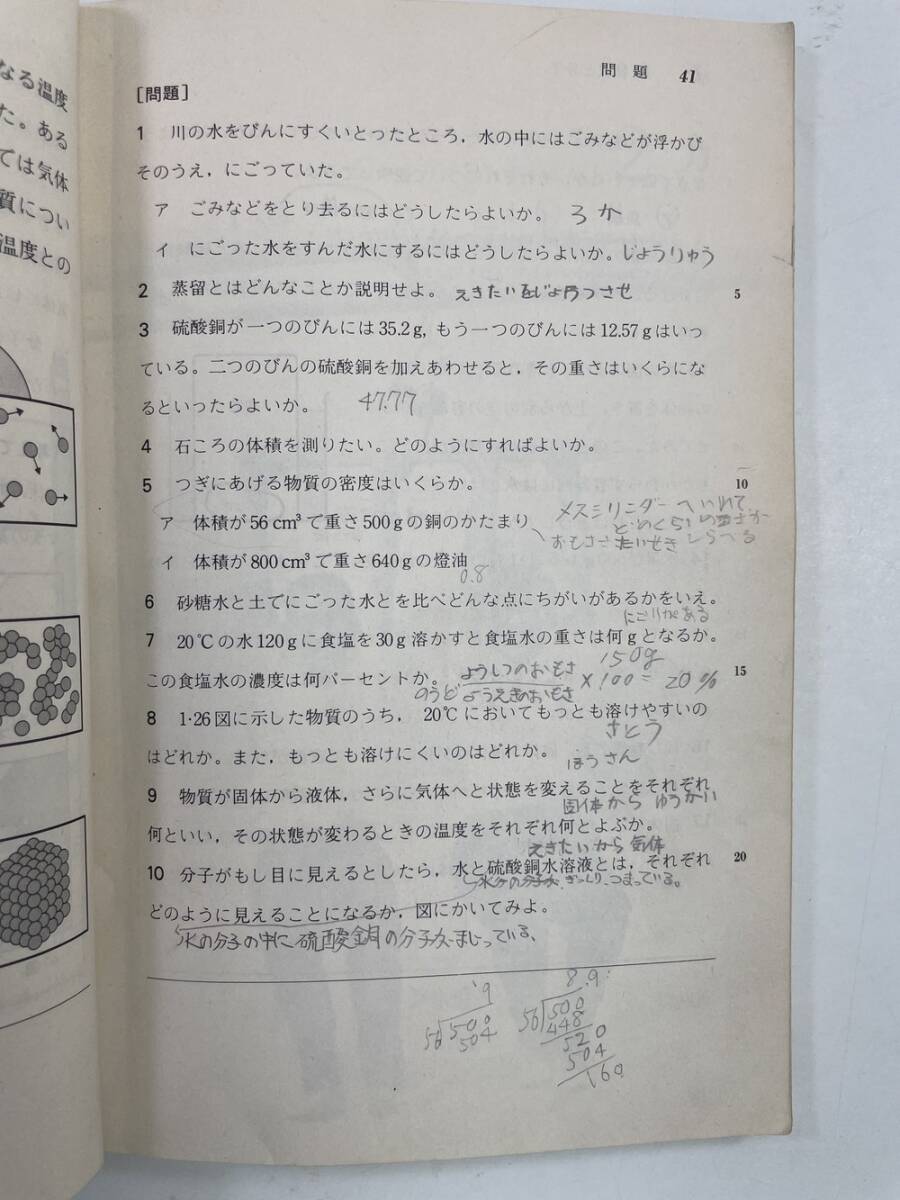 なる温度
た。ある
ては気体
質につい
温度との
問題 41
[問題]
1 川の水をびんにすくいとったところ，水の中にはごみなどが浮かび
そのうえ，にごっていた。
ア ごみなどをとり去るにはどうしたらよいか。 ろか
イ にごった水をすんだ水にするにはどうしたらよいか。じょうりゅう
2 蒸留とはどんなことか説明せよ。 えきたいをじょ 5
3 硫酸銅が一つのびんには35.2g, もう一つのびんには12.57gはいっ
ている。二つのびんの硫酸銅を加えあわせると，その重さはいくらにな
るといったらよいか。 47.77
4 石ころの体積を測りたい。どのようにすればよいか。
5 つぎにあげる物質の密度はいくらか。 10
メスシリンダーへいれて
ア 体積が56cm³で重さ500gの銅のかたまり
どのくらい
おもさ たいせき しらべる
イ 体積が800cm³で重さ640gの燈油
0.8
6 砂糖水と土でにごった水とを比べどんな点にちがいがあるかをいえ。
にごりがある
7 20℃の水120gに食塩を30g溶かすと食塩水の重さは何gとなるか。
150g
この食塩水の濃度は何パーセントか。 ようしつのおもさ 15
のうど ようえきのおもさ ×100=20%
8 1·26図に示した物質のうち， 20℃においてもっとも溶けやすいの
さとう
はどれか。また，もっとも溶けにくいのはどれか。 ほうさん
9 物質が固体から液体，さらに気体へと状態を変えることをそれぞれ
固体から ゆうかい
何といい，その状態が変わるときの温度をそれぞれ何とよぶか。
えきたいから気体 20
10 分子がもし目に見えるとしたら，水と硫酸銅水溶液とは，それぞれ
水分の分子が ぎっしり つまっている。
どのように見えることになるか，図にかいてみよ。
水の分子の中に硫酸銅の分子がまじっている、
9
56 500
504
8.9
56 500
448
520
504
160